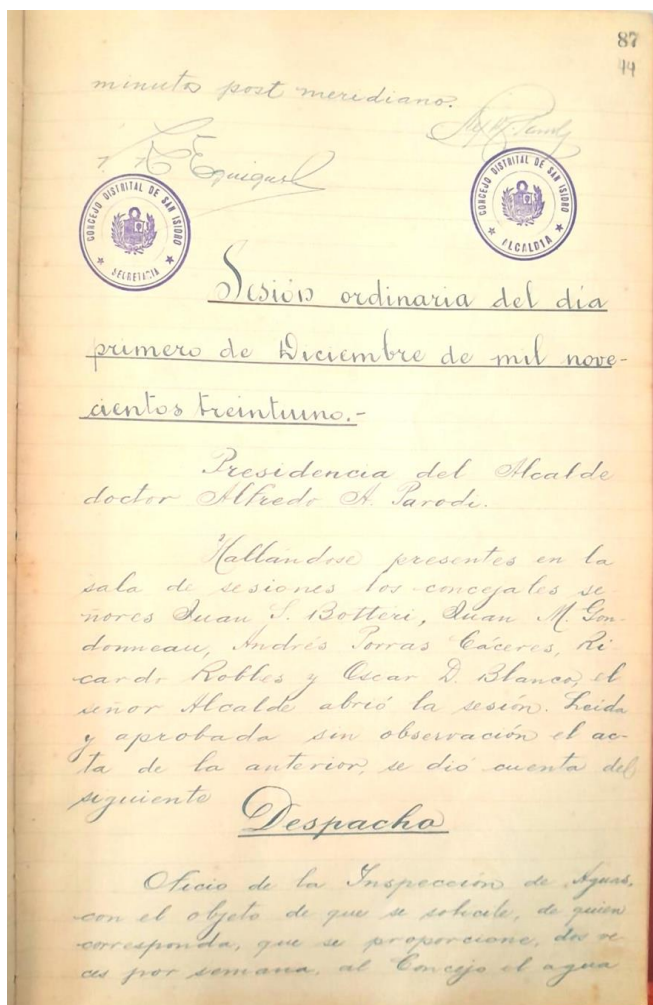 87
44
minutos post meridiano.
CONCEJO DISTRITAL DE SAN ISIDRO
SECRETARIA
CONCEJO DISTRITAL DE SAN ISIDRO
ALCALDIA
Sesión ordinaria del día
primero de Diciembre de mil nove-
cientos treintiuno.-
Presidencia del Alcalde
doctor Alfredo A. Parodi.
Hallándose presentes en la
sala de sesiones los concejales se-
ñores Juan S. Botteri, Juan M. Gon-
donneau, Andrés Porras Cáceres, Ri-
cardo Robles y Oscar D. Blanco, el
señor Alcalde abrió la sesión. Leida
y aprobada sin observación el ac-
ta de la anterior, se dió cuenta del
siguiente
Despacho
Oficio de la Inspección de Aguas,
con el objeto de que se solicite, de quien
corresponda, que se proporcione, dos ve-
ces por semana, al Concejo el agua